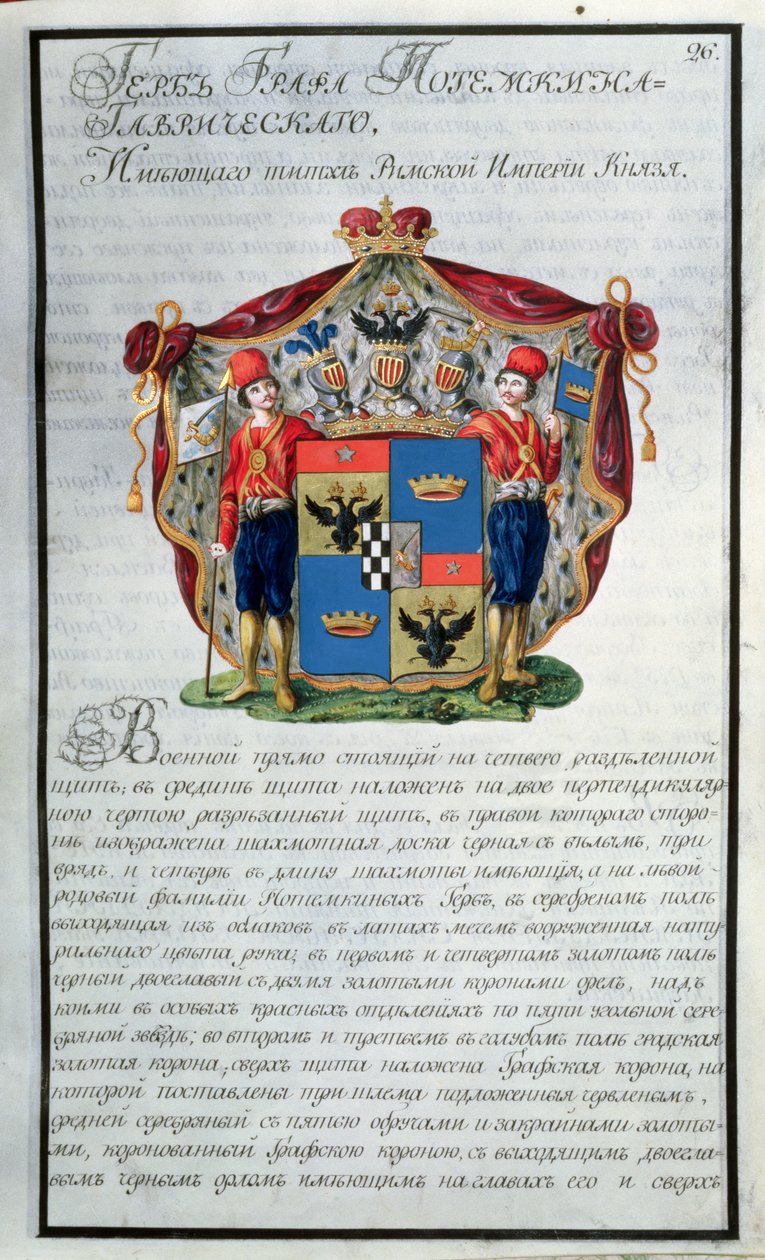 26.
Гербъ Графа Потемкина=
Таврическаго,
Имѣющаго титхлъ Римской Имперіи Князя.
Военной прямо стоящій на четверо раздѣленной
щитъ; въ срединѣ щита наложенъ на двое перпендикуляр-
ною чертою разрѣзанный щитъ, въ правой котораго сторо-
нѣ изображена шахмотная доска черная съ бѣлымъ, три
врядъ, и четырѣ въ длину шахмоты имѣющія, а на лѣвой
родовый фамиліи Потемкиныхъ Гербъ, въ серебреномъ полѣ
выходящая изъ облаковъ въ латахъ мечемъ вооруженная нату-
ральнаго цвѣта рука; въ первомъ и четвертомъ золотомъ полѣ
черный двоеглавый съ двумя золотыми коронами орелъ, надъ
коими въ особыхъ красныхъ отдѣленіяхъ по пяти угольной сере-
бряной звѣздѣ; во второмъ и третьемъ въ голубомъ полѣ градская
золотая корона, сверхъ щита наложена Графская корона, на
которой поставлены три шлема подложенныя червленымъ,
средней серебряный съ пятью обручами и закрайнами золоты-
ми, коронованный Графскою короною, съ выходящимъ двоегла-
вымъ чернымъ орломъ имѣющимъ на главахъ его и сверхъ